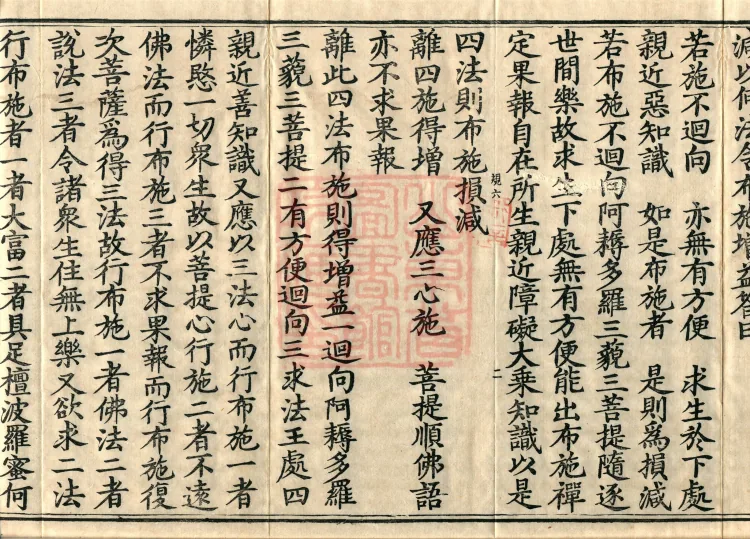 減以何法令布施增益答曰
若施不迴向　亦無有方便　求生於下處
親近惡知識　如是布施者　是則為損減
若布施不迴向阿耨多羅三藐三菩提隨逐
世間樂故求生下處無有方便能出布施禪
定果報自在所生親近障礙大乘知識以是
規六　二
四法則布施損減
離四施得增　又應三心施　菩提順佛語
亦不求果報
離此四法布施則得增益一迴向阿耨多羅
三藐三菩提二有方便迴向三求法王處四
親近善知識又應以三法心而行布施一者
憐愍一切眾生故以菩提心行施二者不遠
佛法而行布施三者不求果報而行布施復
次菩薩為得三法故行布施一者佛法二者
說法三者令諸眾生住無上樂又欲求二法
行布施者一者大富二者具足檀波羅蜜何